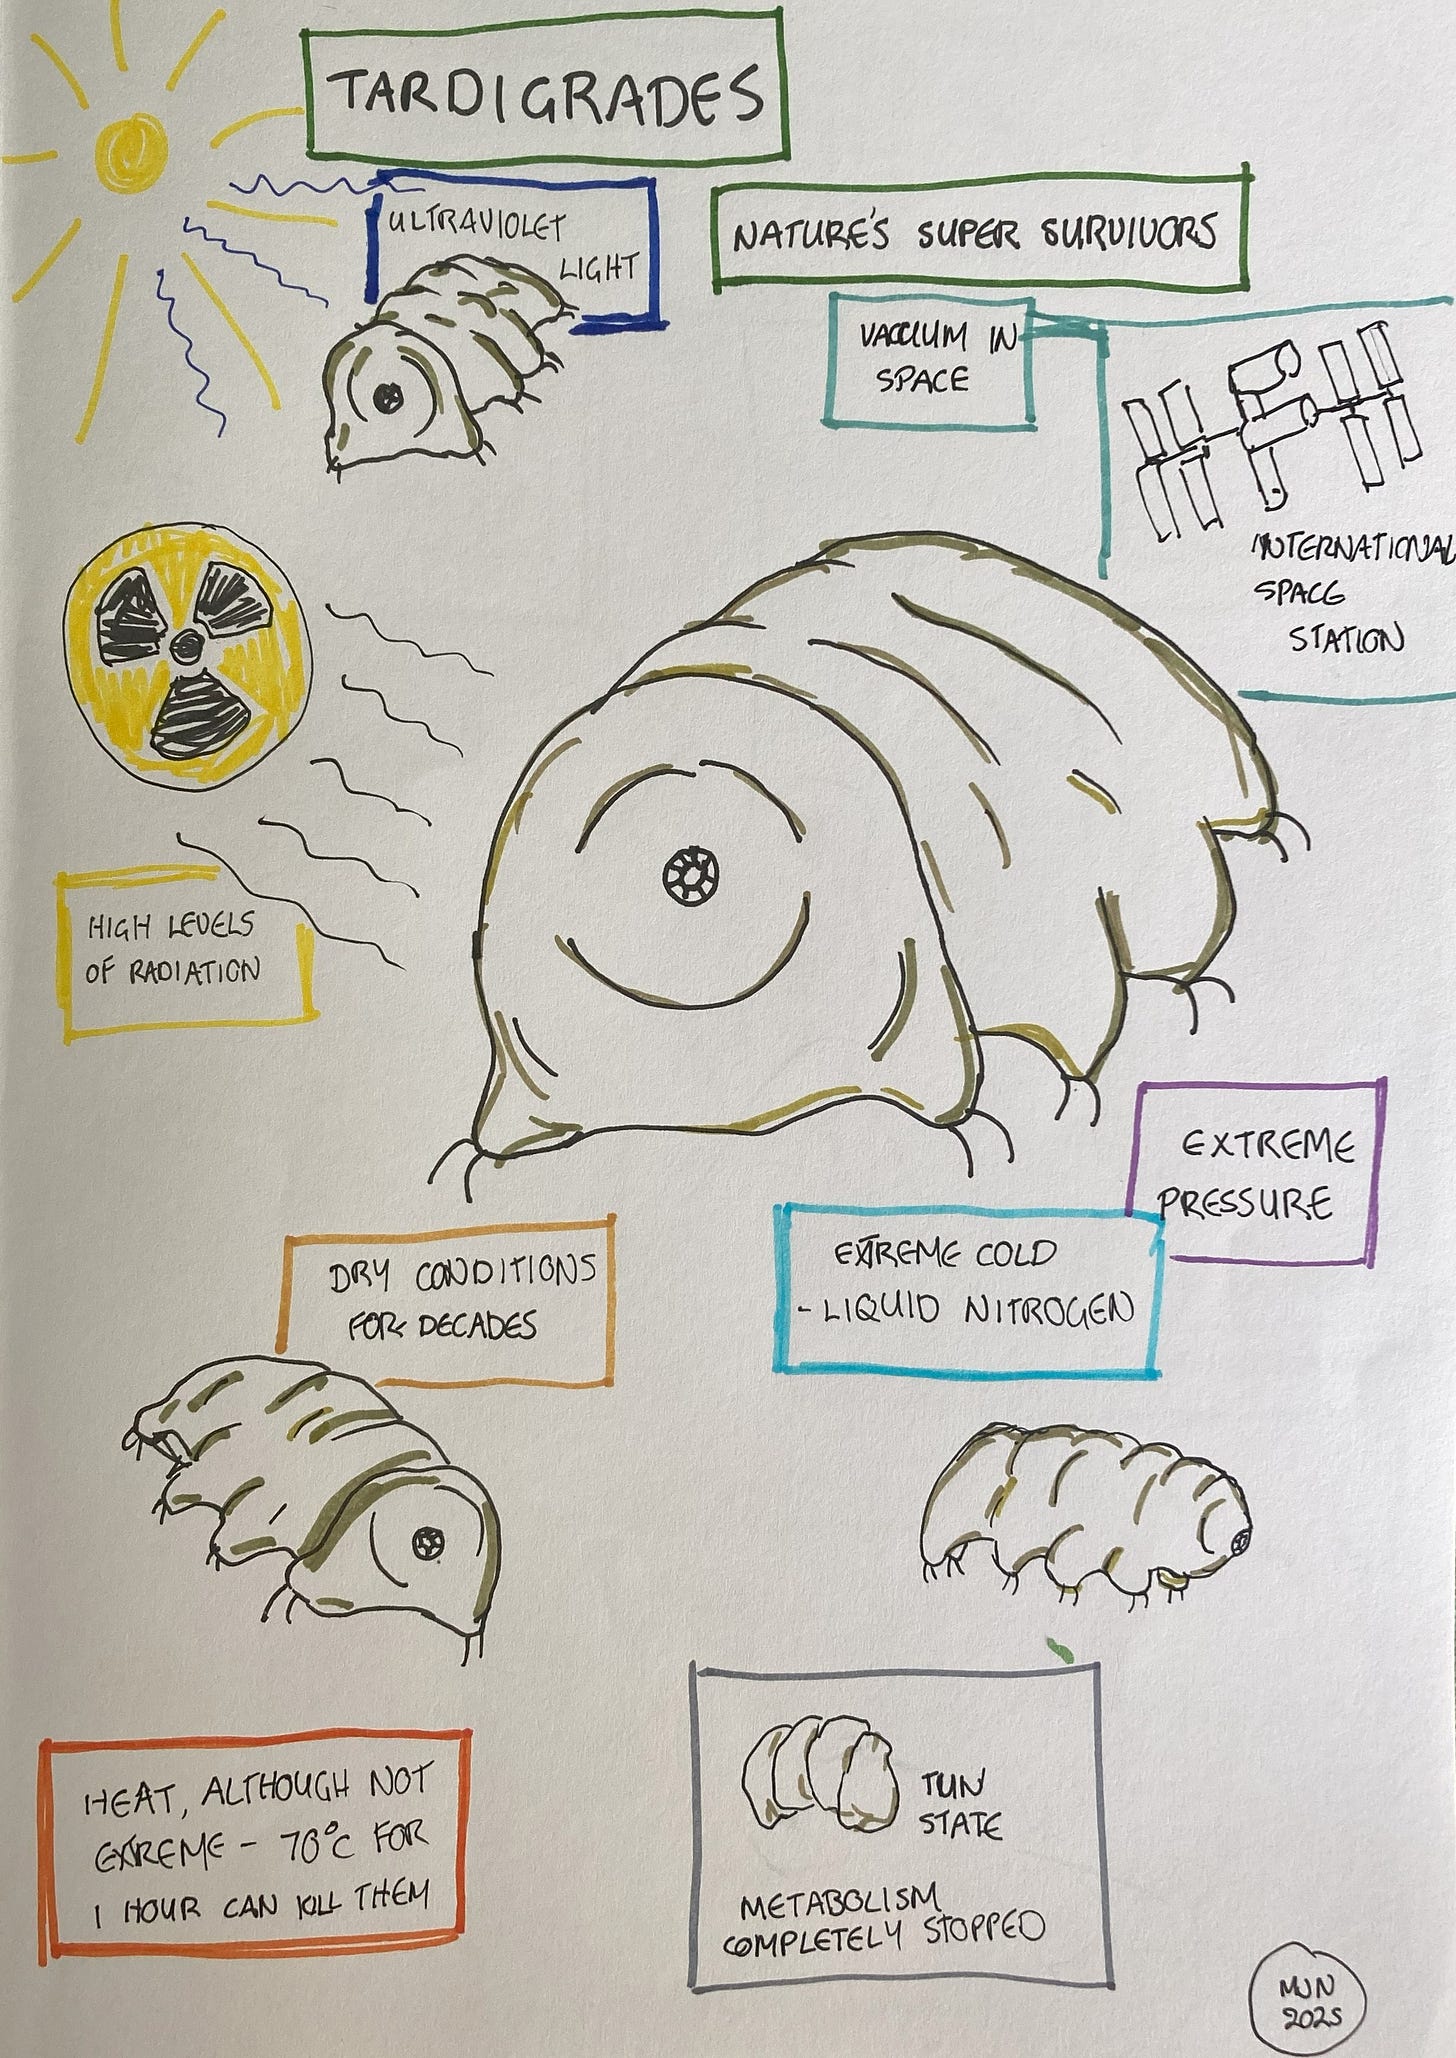 TARDIGRADES
ULTRAVIOLET
LIGHT
NATURE'S SUPER SURVIVORS
VACUUM IN
SPACE
INTERNATIONAL
SPACE
STATION
HIGH LEVELS
OF RADIATION
EXTREME
PRESSURE
DRY CONDITIONS
FOR DECADES
EXTREME COLD
- LIQUID NITROGEN
HEAT, ALTHOUGH NOT
EXTREME - 70°C FOR
1 HOUR CAN KILL THEM
TUN
STATE
METABOLISM
COMPLETELY STOPPED
MJN
2025